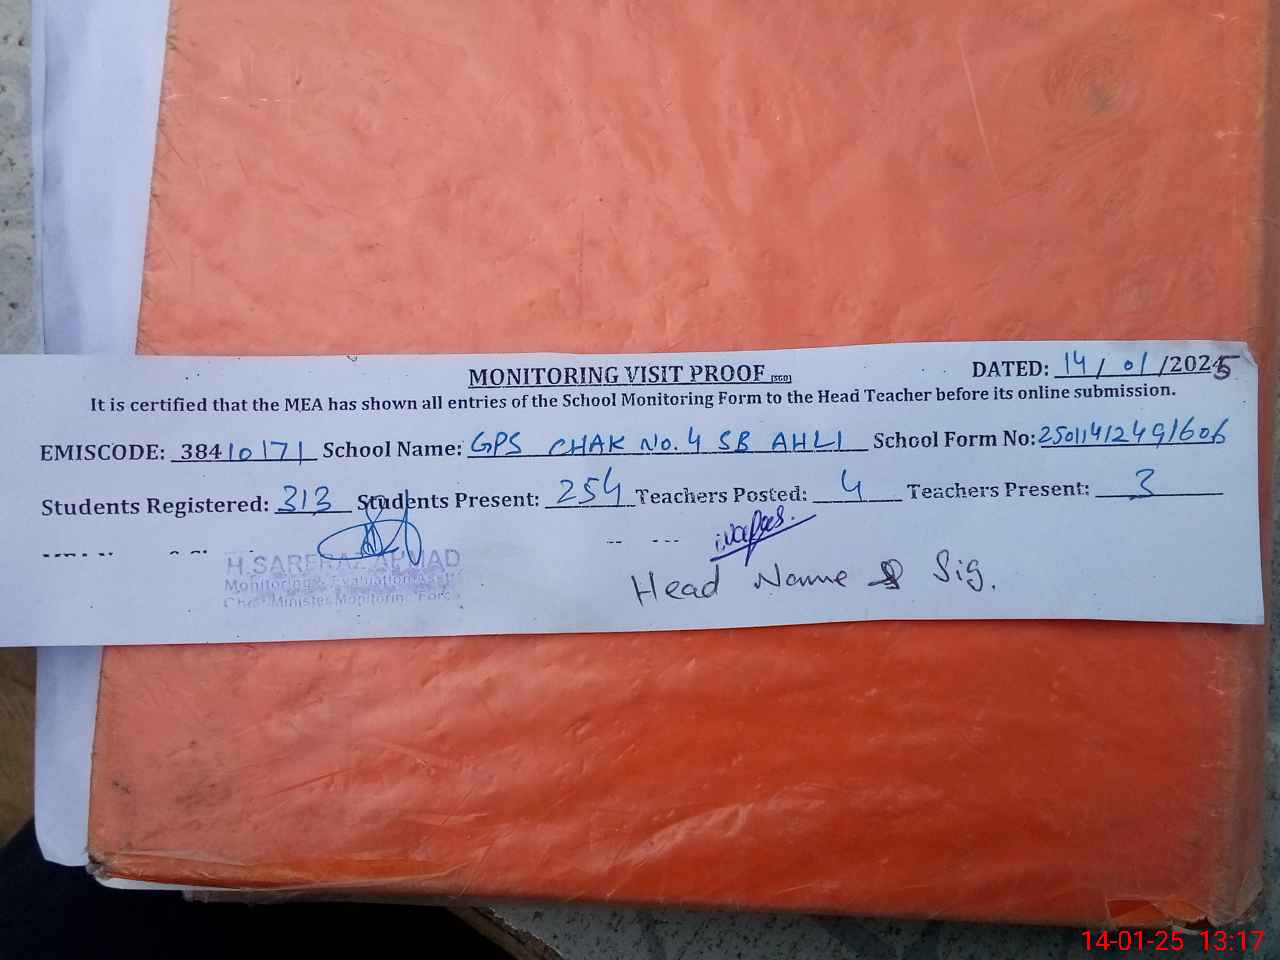 MONITORING VISIT PROOF (SGD)
DATED: 14/01/2025
It is certified that the MEA has shown all entries of the School Monitoring Form to the Head Teacher before its online submission.
EMISCODE: 38410171 School Name: GPS CHAK NO. 4 SB AHLI School Form No: 25011412491606
Students Registered: 313 Students Present: 254 Teachers Posted: 4 Teachers Present: 3
H.SARFRAZ AHMAD
Monitoring & Evaluation Asstt
Chief Minister Monitoring Force
Head Name & Sig.
14-01-25 13:17